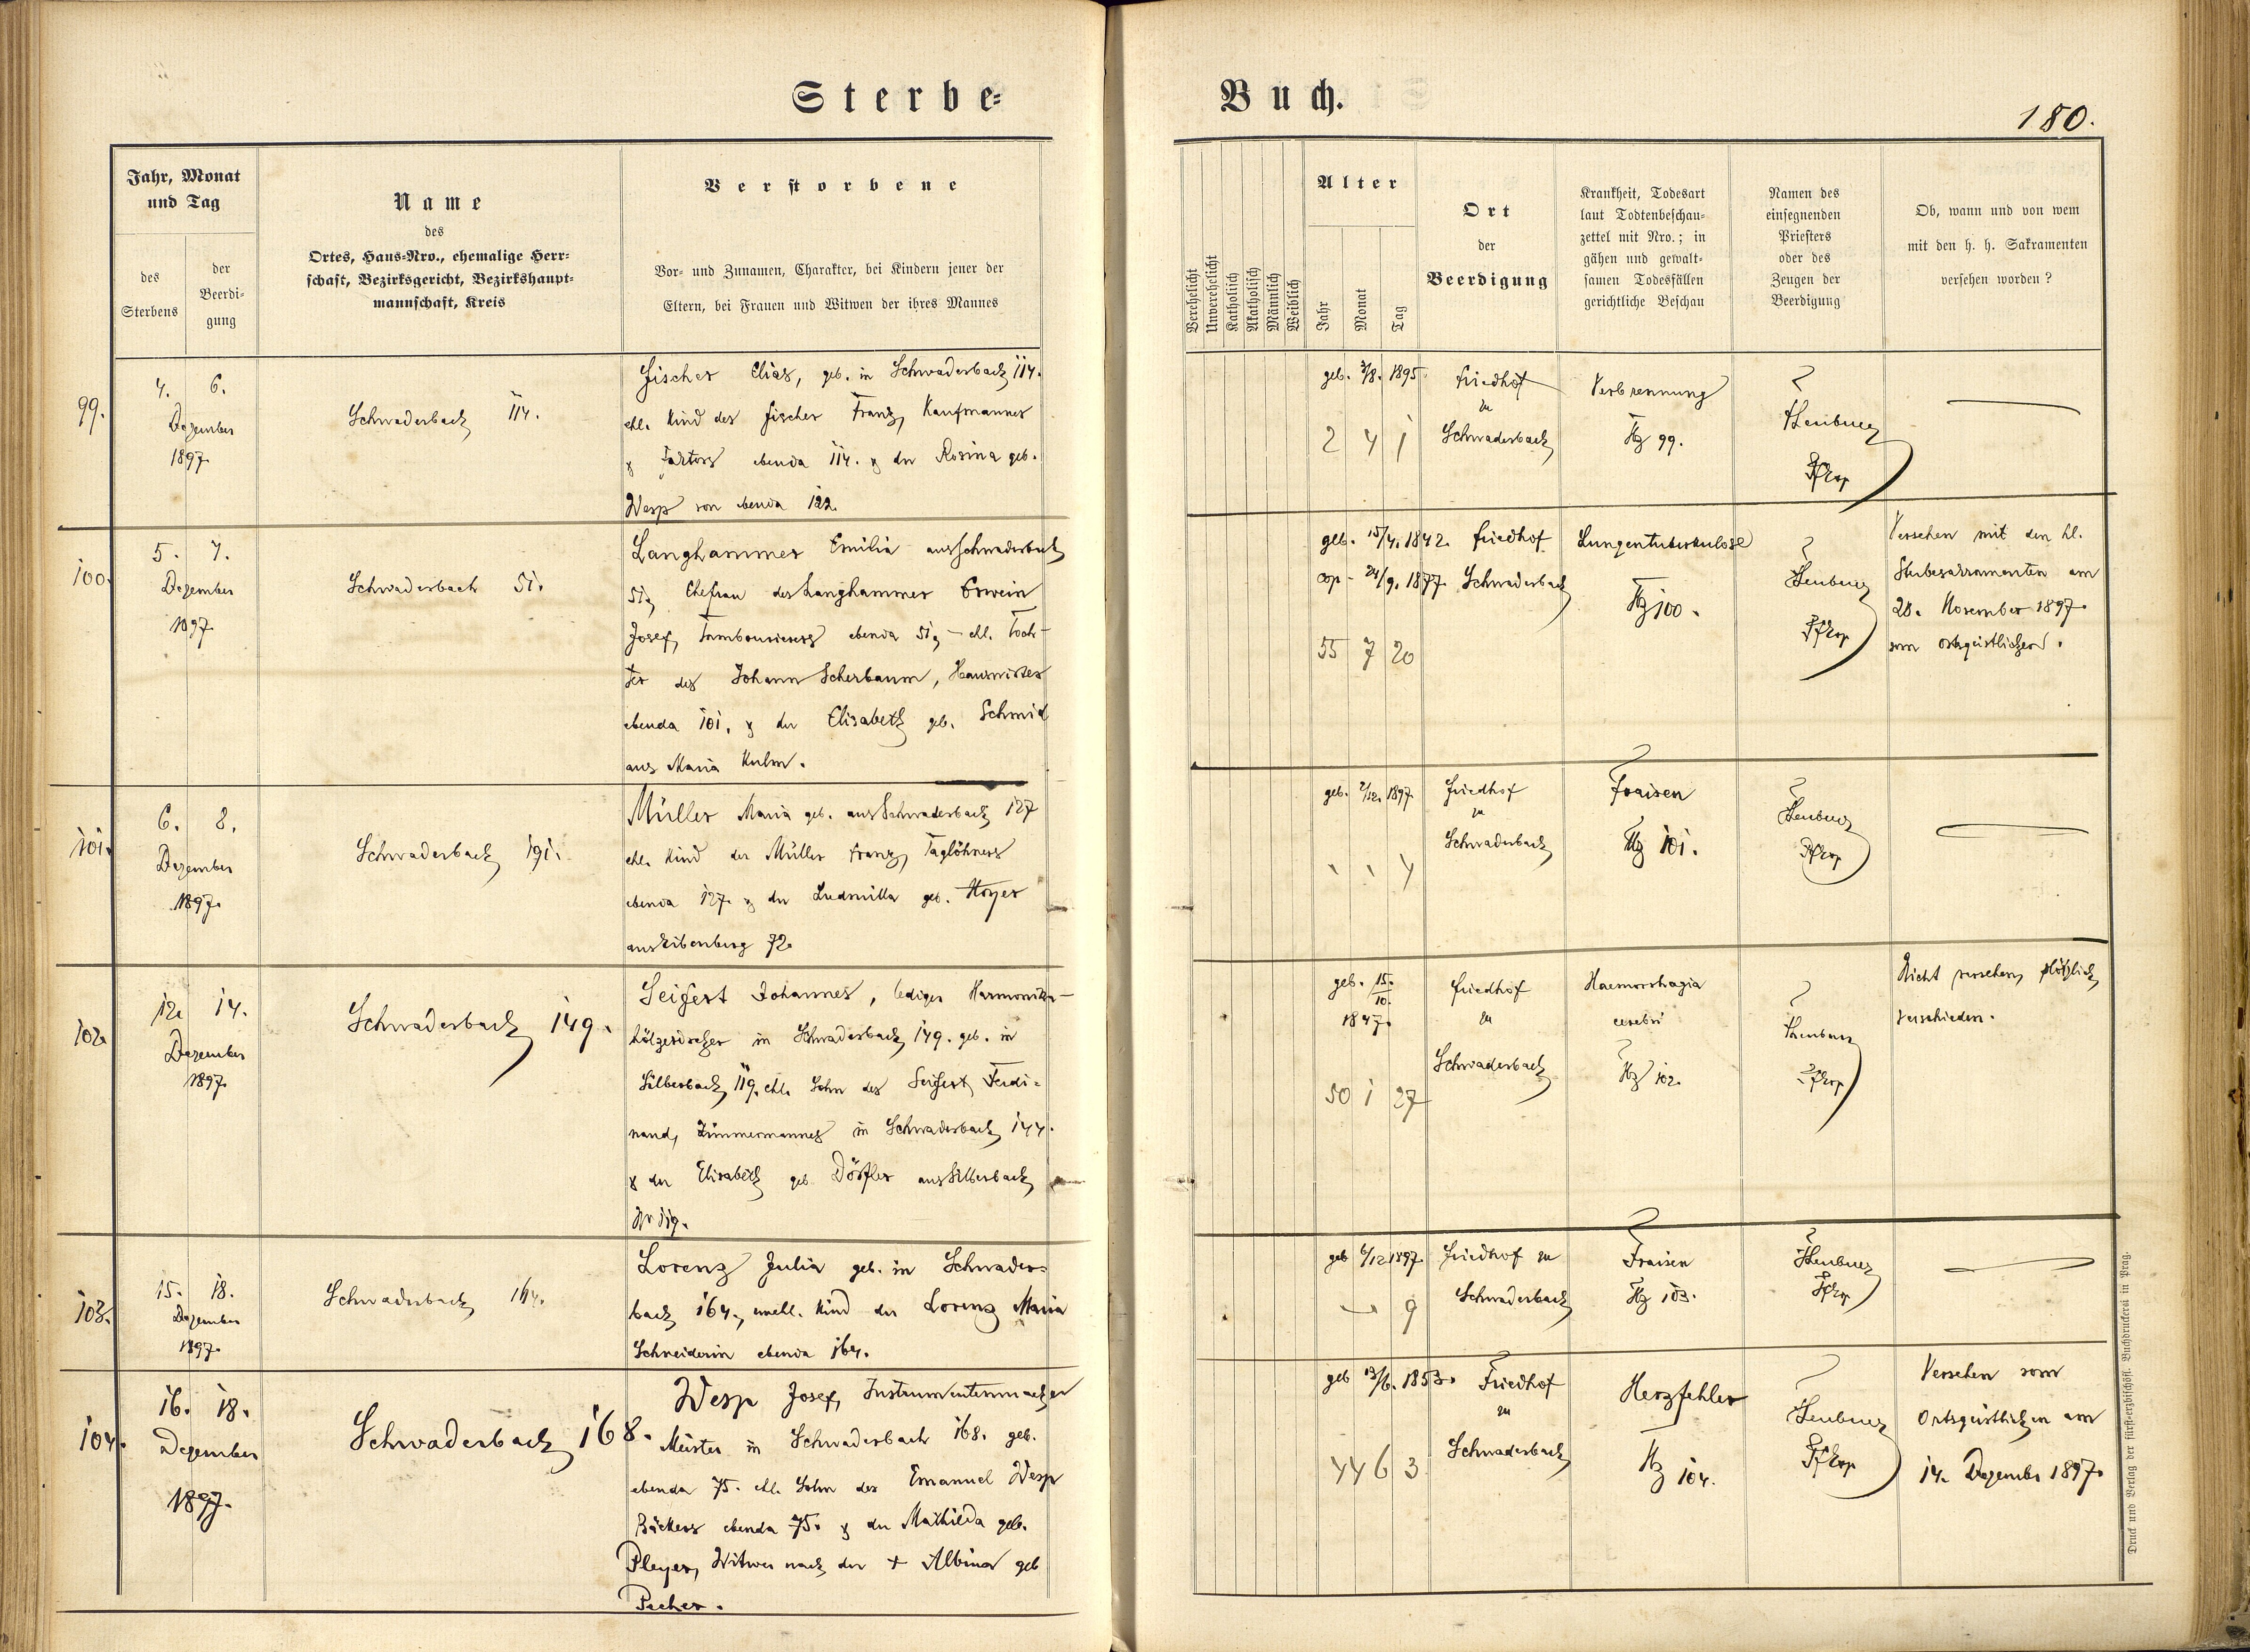 Sterbe-
Buch.
180.
Jahr, Monat
und Tag
des
Sterbens
der
Beerdi-
gung
Name
des
Ortes, Haus-Nro., ehemalige Herr-
schaft, Bezirksgericht, Bezirkshaupt-
mannschaft, Kreis
Verstorbene
Vor- und Zunamen, Charakter, bei Kindern jener der
Eltern, bei Frauen und Witwen der ihres Mannes
Verehelicht
Unverehelicht
Katholisch
Akatholisch
Männlich
Weiblich
Alter
Jahr
Monat
Tag
Ort
der
Beerdigung
Krankheit, Todesart
laut Todtenbeschau-
zettel mit Nro.; in
gähen und gewalt-
samen Todesfällen
gerichtliche Beschau
Namen des
einsegnenden
Priesters
oder des
Zeugen der
Beerdigung
Ob, wann und von wem
mit den h. h. Sakramenten
versehen worden?
99.
4. 6.
Dezember
1897
Schwaderbach 114.
Fischer Elias, geb. in Schwaderbach 114.
ehl. Kind des Fischer Franz, Kaufmannes
& Faktors ebenda 114. & der Rosina geb.
Wesp von ebenda 122.
geb. 3/8. 1895.
2 4 1
Friedhof
zu
Schwaderbach
Verbrennung
99.
100.
5. 7.
Dezember
1897
Schwaderbach 51.
Langhammer Emilia aus Schwaderbach
51, Ehefrau des Langhammer Erwein
Josef, Tambourierers ebenda 51, - ehl. Toch-
ter des Johann Scherbaum, Hauswirtes
ebenda 101. & der Elisabeth geb. Schmid
aus Maria Kulm.
geb. 15/4. 1842.
cop - 24/9. 1877
55 7 20
Friedhof
Schwaderbach
Lungentuberkulose
100.
Versehen mit den hl.
Sterbesakramenten am
28. November 1897
vom Ortsgeistlichen.
101.
6. 8.
Dezember
1897.
Schwaderbach 191.
Müller Maria geb. aus Schwaderbach 127
ehl. Kind des Müller Franz, Taglöhners
ebenda 127. & der Ludmilla geb. Hoyer
aus Eibenberg 72.
geb. 2/12. 1897
4
Friedhof
zu
Schwaderbach
Fraisen
101.
102.
12. 14.
Dezember
1897.
Schwaderbach 149.
Seifert Johannes, lediger Harmonika-
hölzerdreher in Schwaderbach 149. geb. in
Silberbach 119. ehl. Sohn des Seifert Ferdi-
nand, Zimmermannes in Schwaderbach 144.
& der Elisabeth geb. Dörfler aus Silberbach
Nr 119.
geb. 15./10.
1847.
50 1 27
Friedhof
zu
Schwaderbach
Haemorrhagia
cerebri
102.
Nicht versehen, plötzlich
verschieden.
103.
15. 18.
Dezember
1897.
Schwaderbach 164.
Lorenz Julia geb. in Schwader-
bach 164., unehl. Kind der Lorenz Maria
Schneiderin ebenda 164.
geb 6/12 1897.
9
Friedhof zu
Schwaderbach
Fraisen
103.
104.
16. 18.
Dezember
1897.
Schwaderbach 168.
Wesp Josef, Instrumentenmacher
Meister in Schwaderbach 168. geb.
ebenda 75. ehl. Sohn des Emanuel Wesp
Bäckers ebenda 75. & der Mathilda geb.
Pleyer, Witwer nach der + Albina geb
Pecher.
geb 13/6. 1853.
44 6 3
Friedhof
zu
Schwaderbach
Herzfehler
104.
Versehen vom
Ortsgeistlichen am
14. Dezember 1897.
Druck und Verlag der fürst-erzbischöfl. Buchdruckerei in Prag.